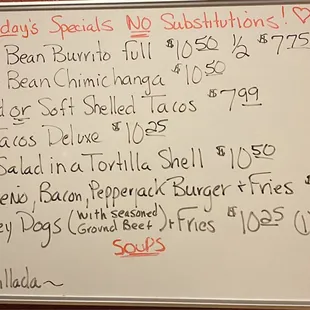 day's Specials NO Substitutions! ♡
Bean Burrito full $10.50 ½ $7.75
Bean Chimichanga $10.50
d or Soft Shelled Tacos $7.99
acos Deluxe $10.25
Salad in a Tortilla Shell $10.50
eño, Bacon, Pepperjack Burger + Fries $
ey Dogs (with seasoned Ground Beef) + Fries $10.25 (1
SOUPS
llada~